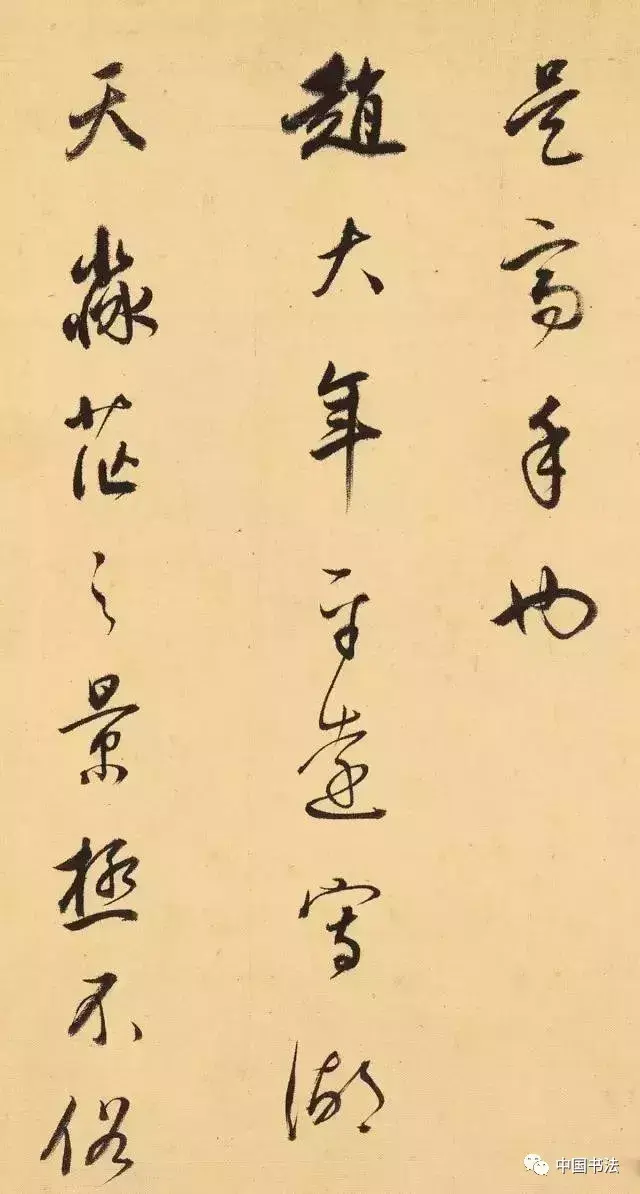 是高手也
趙大年平遠寫湖
天淼茫之景極不俗
中国书法